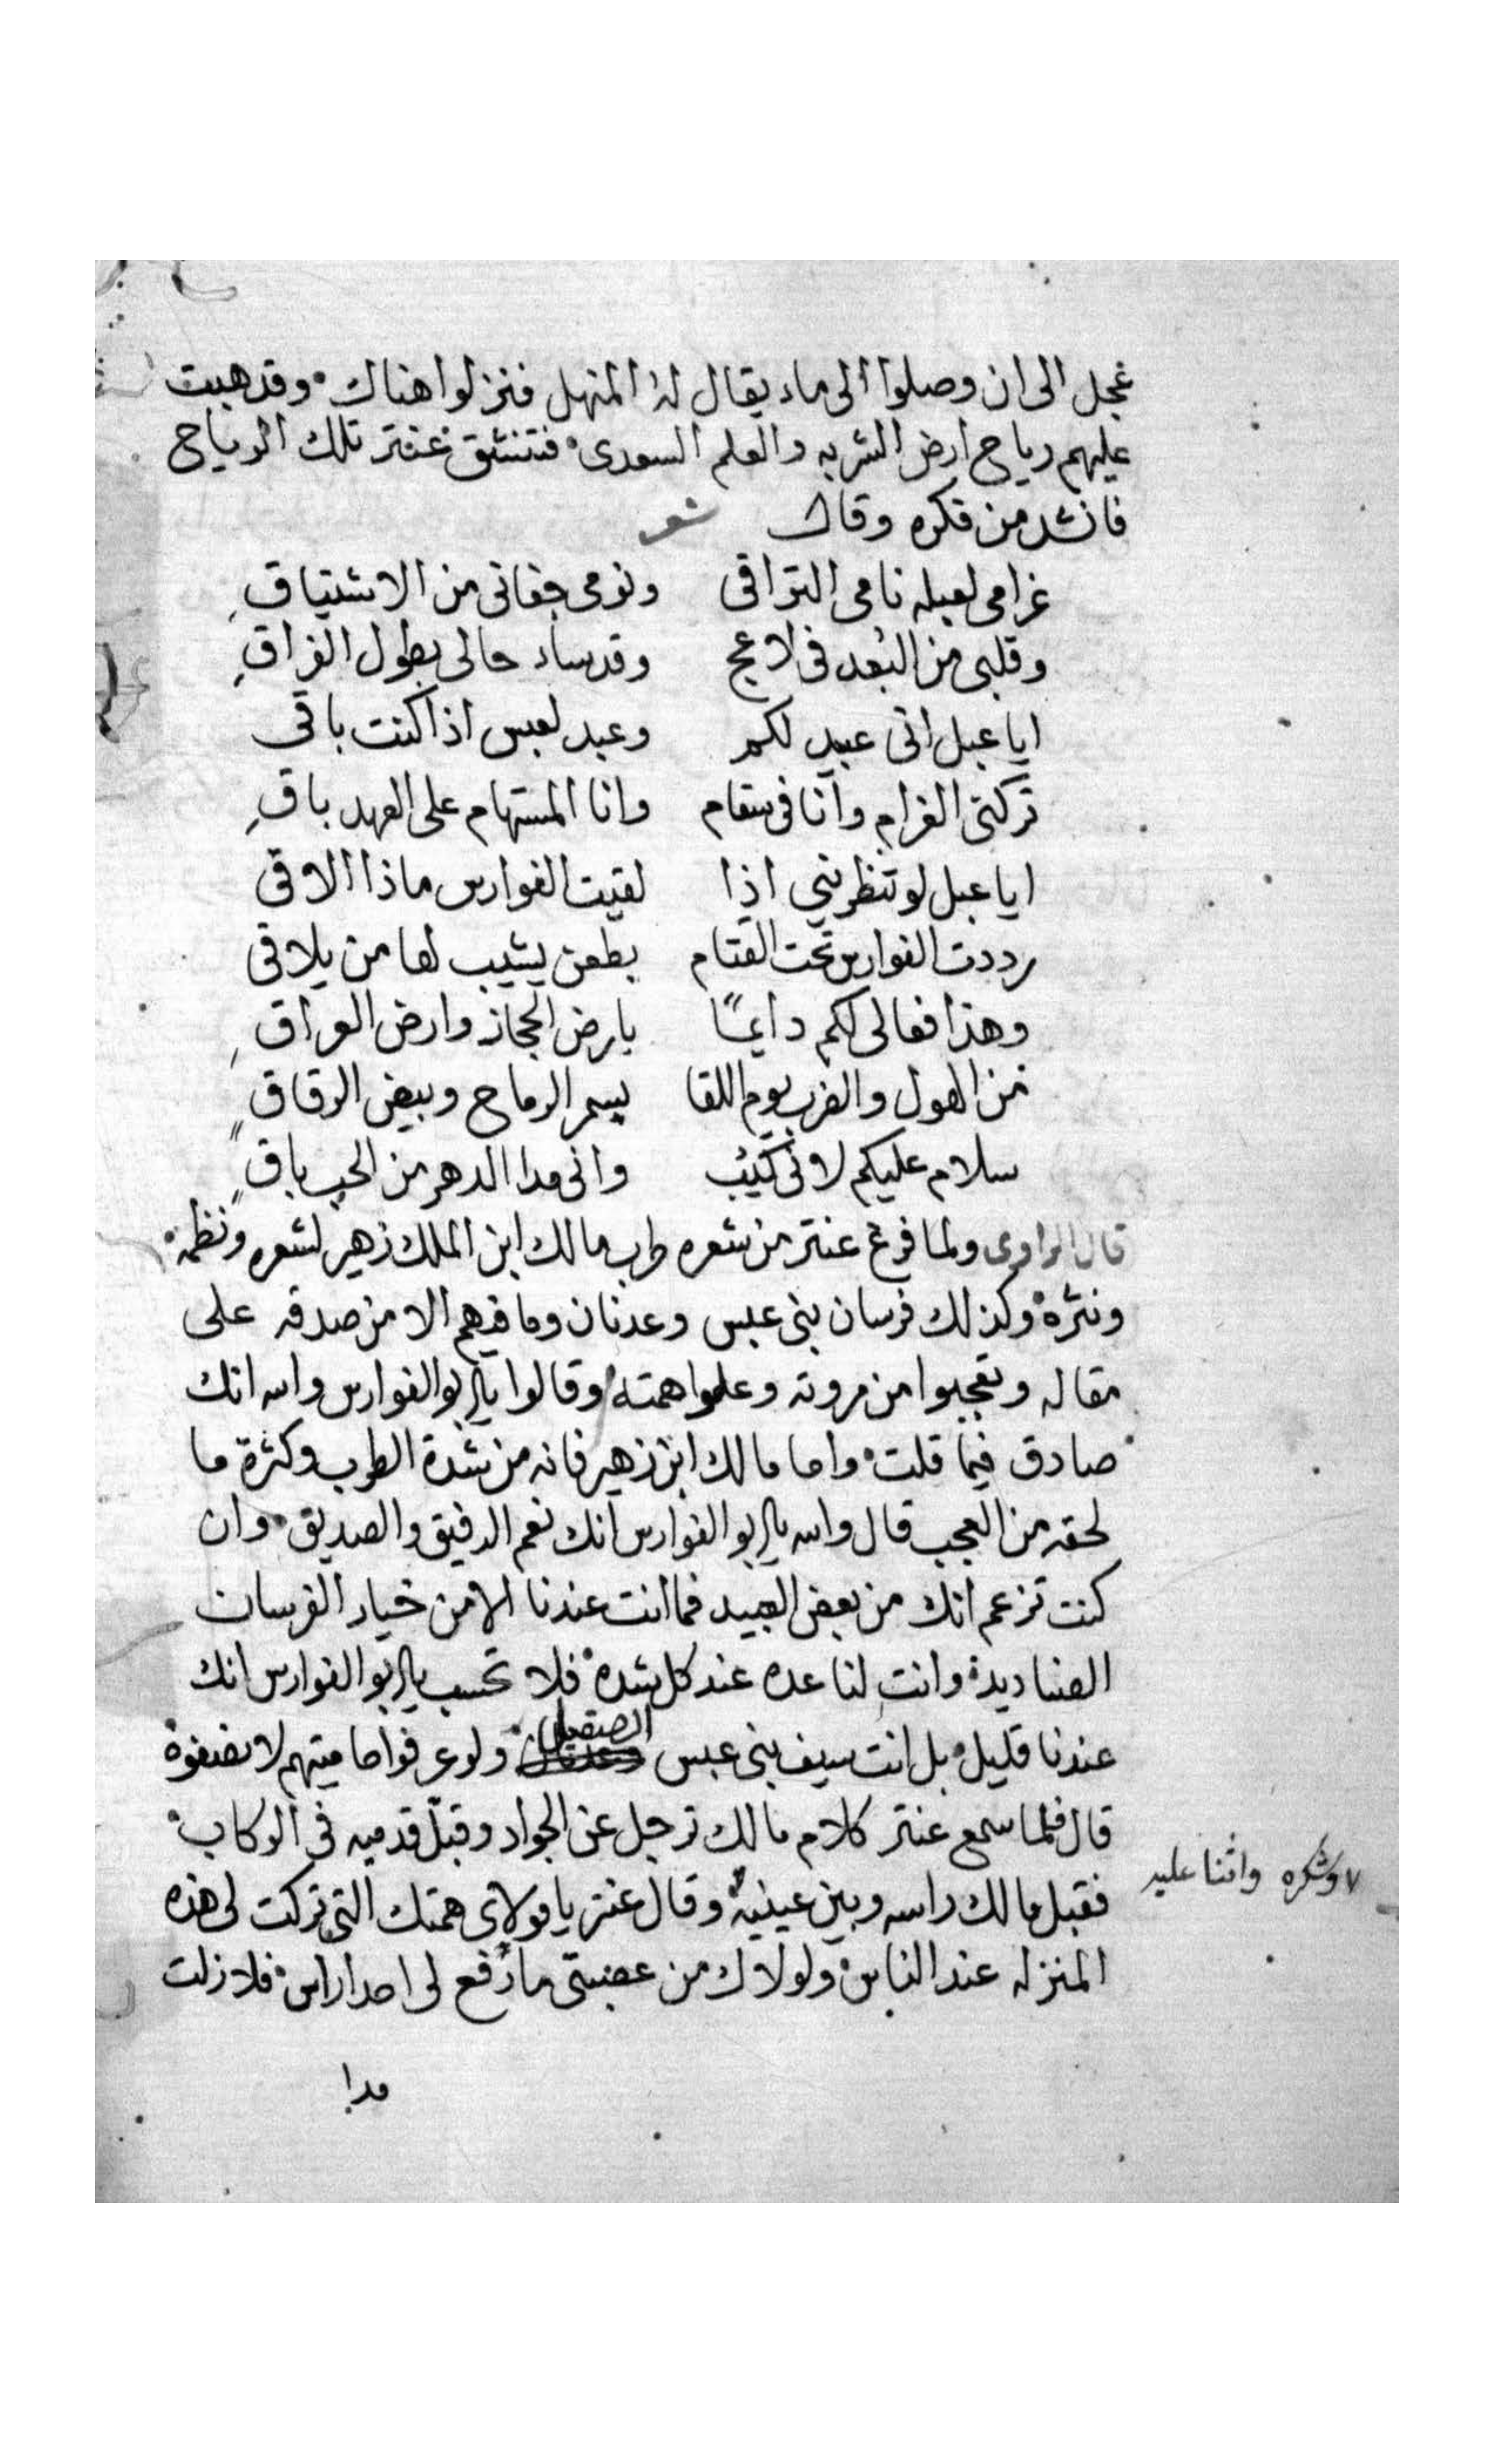 عجل الى ان وصلوا الى ماء يقال له المنهل فنزلوا هناك وقد هبت
عليهم رياح ارض الشربه والعلم السعدى فتنشق عنتر تلك الرياح
فانشد من فكره وقال شعر
غرامى لعبله نامى التراقى ونومى جفانى من الاشتياقِ
وقلبى من البُعد فى لاعج وقد ساء حالى بطول الفراقِ
ايا عبل انى عبيد لكم وعبد لعبس اذا كنت باقى
تركتى الغرام وانا فى سقام وانا المستهام على العهد باقِ
ايا عبل لو تنظرينى اذا لقيت الفوارس ماذا الاقى
رددت الفوارس تحت القتام بطعن يشيب لها من يلاقى
وهذا فعالى لكم دايماً بارض الحجاز وارض العراقِ
من الهول والضرب يوم اللقا بسمر الرماح وبيض الرقاقٍ
سلام عليكم لانى كئيب وانى مدا الدهر من الحب باقٍ
قال الراوى ولما فرغ عنتر من شعره طرب مالك ابن الملك زهير لشعره ونظمه
ونثره وكذلك فرسان بنى عبس وعدنان وما فيهم الا من صدقه على
مقاله وتعجبوا من مروته وعلوا همته وقالوا يا ابو الفوارس والله انك
صادق فيما قلت واما مالك ابن زهير فانه من شدة الطرب وكثرة ما
لحقه من العجب قال والله يا ابو الفوارس انك نعم الرفيق والصديق وان
كنت تزعم انك من بعض العبيد فما انت عندنا الا من خيار الفرسان
الصناديد وانت لنا عده عند كل شده فلا تحسب يا ابو الفوارس انك
عندنا قليل بل انت سيف بنى عبس الصقيل ولو عرفوا حاميتهم لانصفوه
قال فلما سمع عنتر كلام مالك ترجل عن الجواد وقبّل قدميه فى الركاب
وشكره واثنا عليه
فقبل مالك راسه وبين عينيه وقال عنتر يا مولاى همتك التى تركت لى هذه
المنزله عند الناس ولولاك من عصبتى ما رفع لى احدا راس فلا زلت
مدا